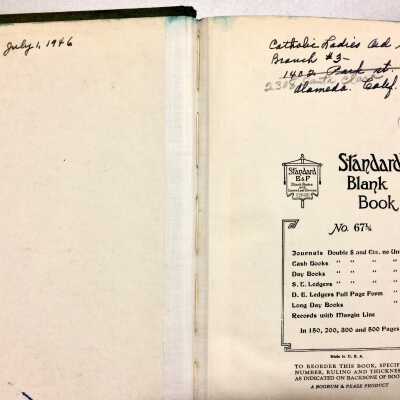 July 1, 1946
Catholic Ladies Aid
Branch #3-
1402 Park st.
2308 Santa Clara
Alameda. Calif.
Standard
B&P
Standard
Blank
Book
No. 67¾
Journals Double $ and Cts. no Un
Cash Books " " "
Day Books " " "
S. E. Ledgers " " "
D. E. Ledgers Full Page Form "
Long Day Books "
Records with Margin Line
In 150, 200, 300 and 500 Pages
Made in U.S.A.
TO REORDER THIS BOOK, SPECIF
NUMBER, RULING AND THICKNES
AS INDICATED ON BACKBONE OF BOO
A BOORUM & PEASE PRODUCT